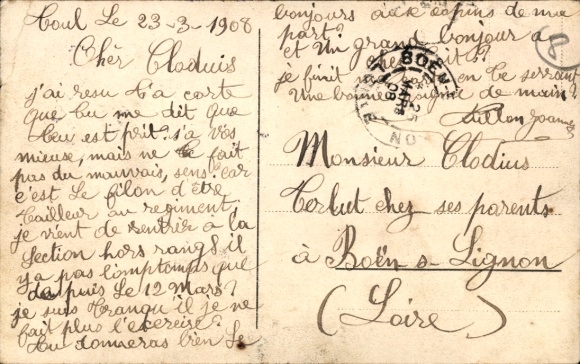 Toul Le 23-3-1908
Chér Clodius
j'ai resu ta carte
que tu me dit que
tu est prit. s'a vos
mieuse, mais ne te fait
pas du mauvais, sens car
c'est Le filon d'être
tailleur au regiment,
je vient de rentrier a la
section hors rang, il
y a pas Lomptemps que
depuis Le 12 Mars?
je suis tranqu il je ne
fait plus l'exercise?
Tu donneras bien Le
bonjours aux copins de ma
part?
et un grand bonjour a
je finit en te serrant
Une bonne de main?
Monsieur Clodius
Terlut chez ses parents
à Boën s- Lignon
(Loire)
BOËN-
25
MARS
08
8